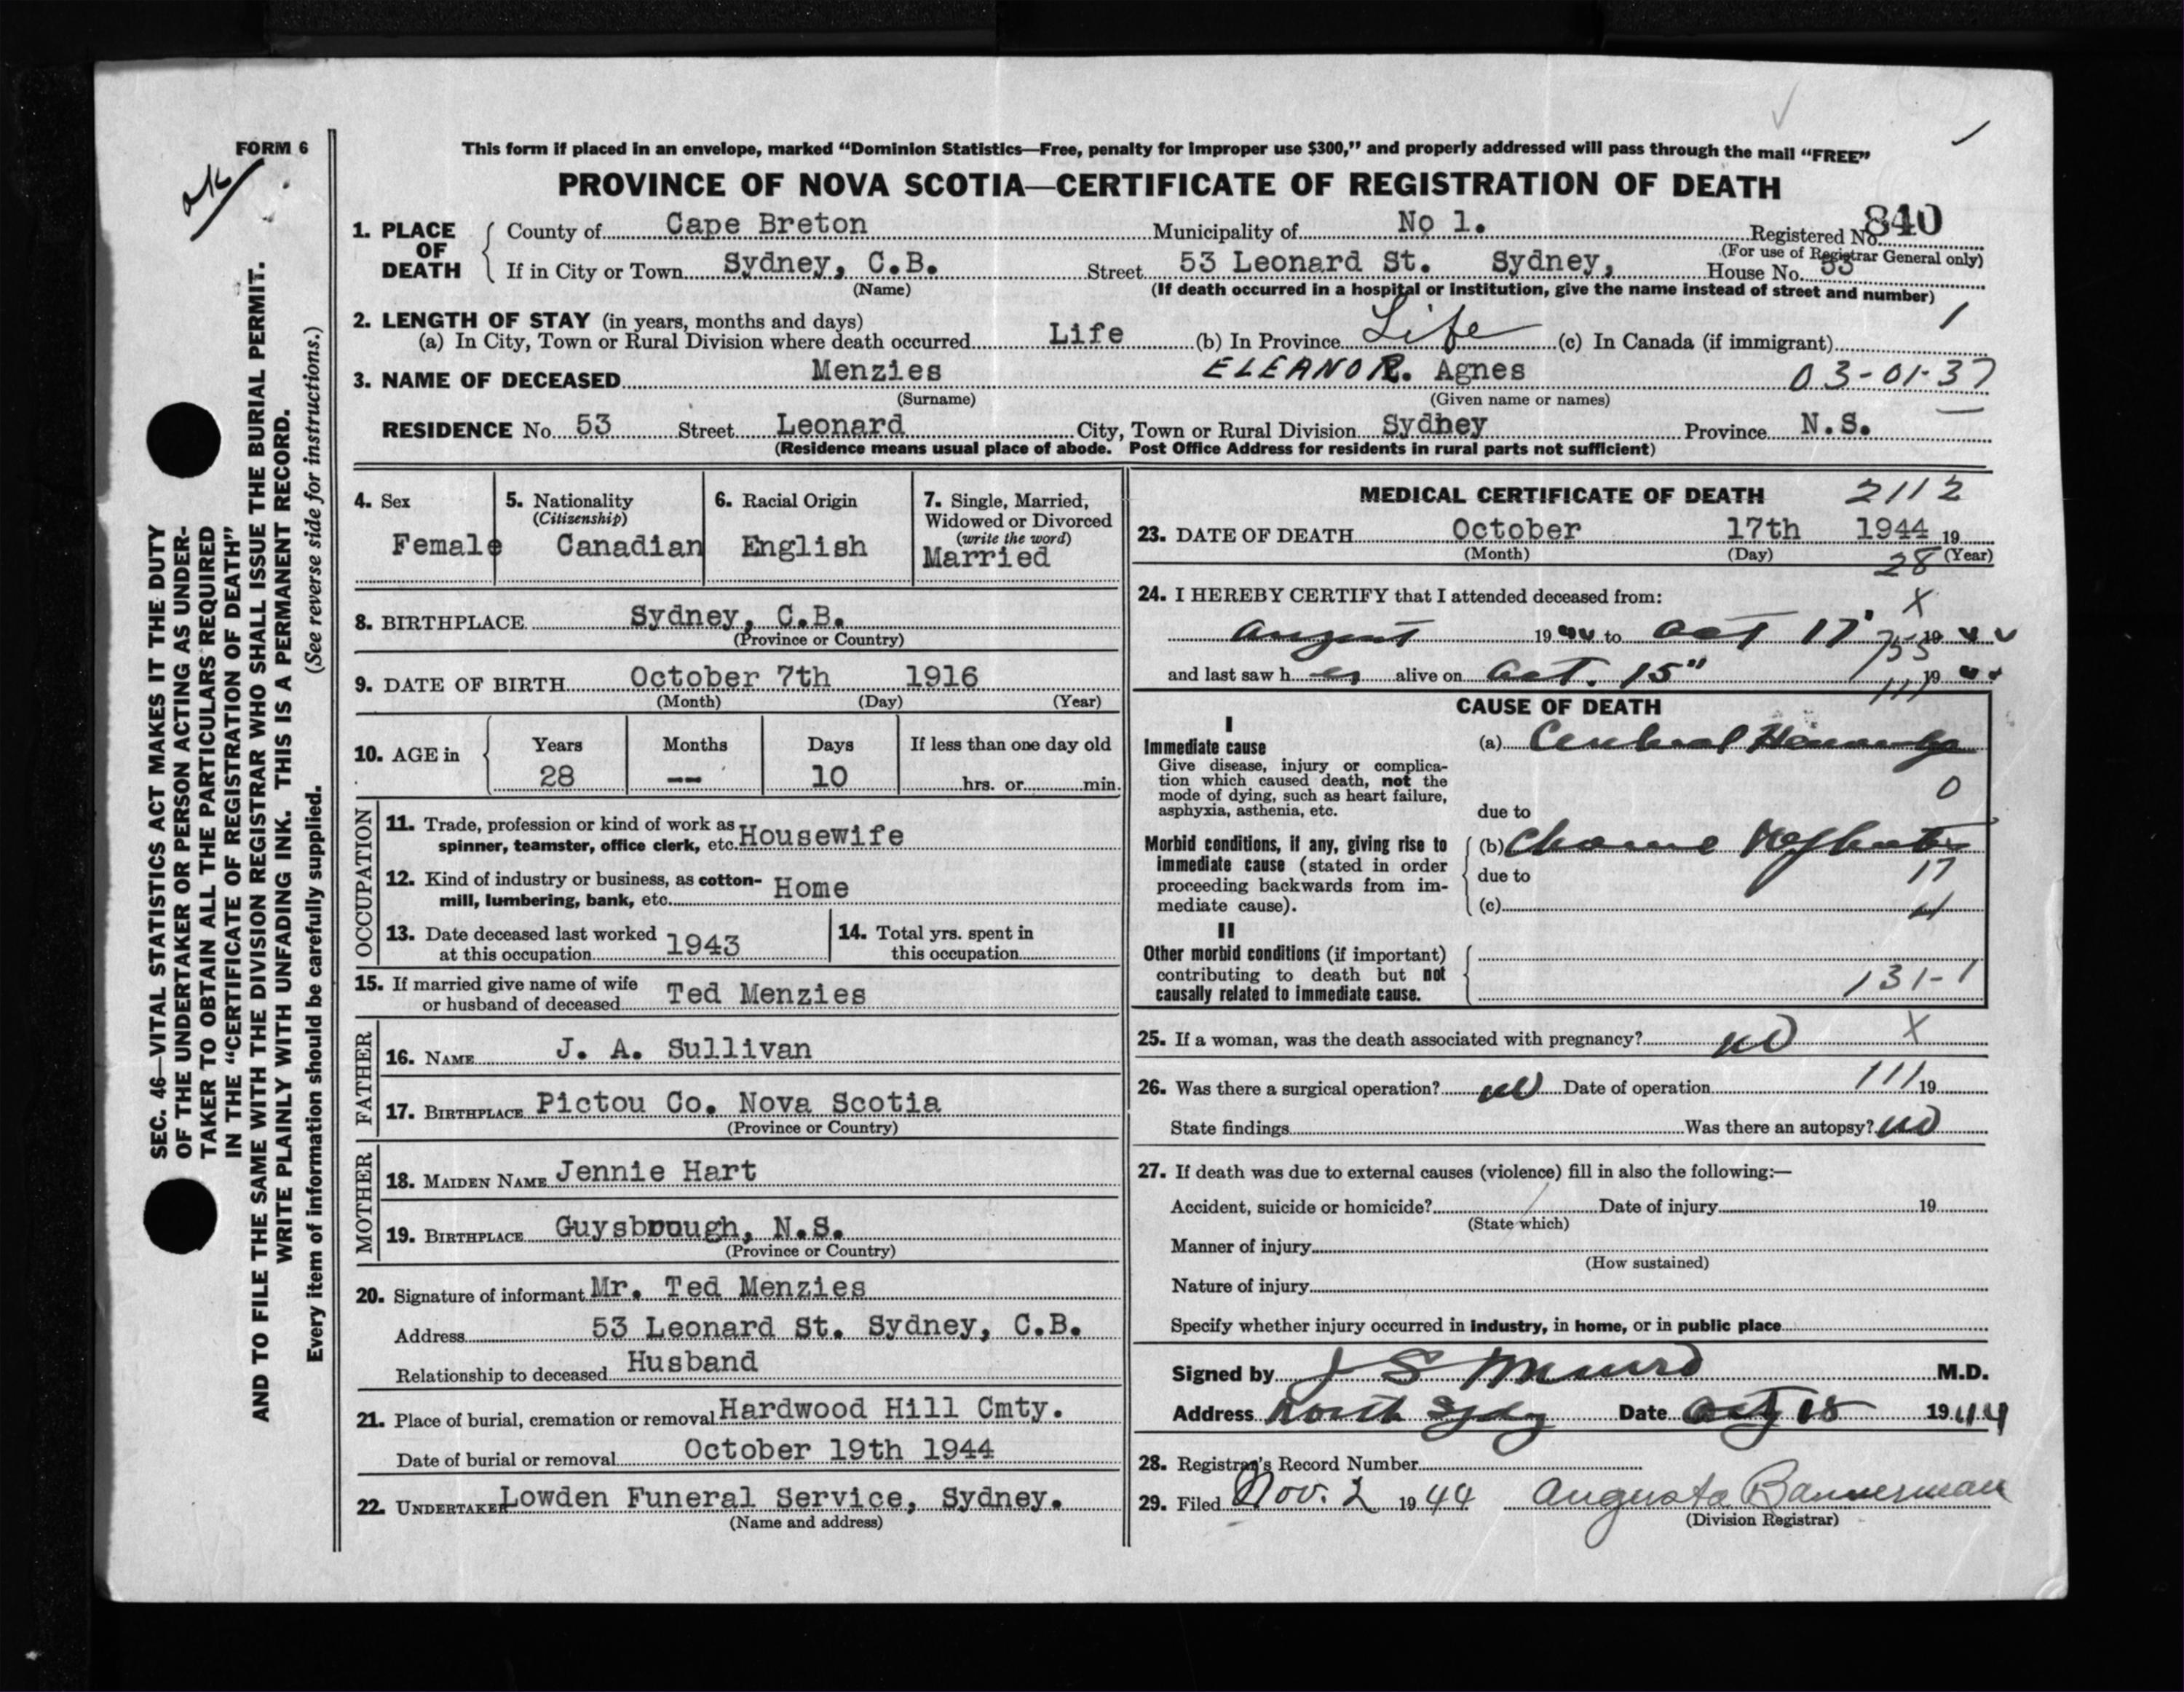 FORM 6
ok
This form if placed in an envelope, marked “Dominion Statistics—Free, penalty for improper use $300,” and properly addressed will pass through the mail “FREE”
PROVINCE OF NOVA SCOTIA—CERTIFICATE OF REGISTRATION OF DEATH
SEC. 46—VITAL STATISTICS ACT MAKES IT THE DUTY
OF THE UNDERTAKER OR PERSON ACTING AS UNDER-
TAKER TO OBTAIN ALL THE PARTICULARS REQUIRED
IN THE “CERTIFICATE OF REGISTRATION OF DEATH”
AND TO FILE THE SAME WITH THE DIVISION REGISTRAR WHO SHALL ISSUE THE BURIAL PERMIT.
WRITE PLAINLY WITH UNFADING INK. THIS IS A PERMANENT RECORD.
Every item of information should be carefully supplied. (See reverse side for instructions.)
1. PLACE OF DEATH County of Cape Breton Municipality of No 1. Registered No. 840
(For use of Registrar General only)
If in City or Town Sydney, C.B. Street 53 Leonard St. Sydney, House No. 53
(Name) (If death occurred in a hospital or institution, give the name instead of street and number)
2. LENGTH OF STAY (in years, months and days) 1
(a) In City, Town or Rural Division where death occurred Life (b) In Province Life (c) In Canada (if immigrant)
3. NAME OF DECEASED Menzies ELEANOR. Agnes 03-01-37
(Surname) (Given name or names)
RESIDENCE No. 53 Street Leonard City, Town or Rural Division Sydney Province N.S.
(Residence means usual place of abode. Post Office Address for residents in rural parts not sufficient)
4. Sex
Female
5. Nationality
(Citizenship)
Canadian
6. Racial Origin
English
7. Single, Married,
Widowed or Divorced
(write the word)
Married
8. BIRTHPLACE Sydney, C.B.
(Province or Country)
9. DATE OF BIRTH October 7th 1916
(Month) (Day) (Year)
10. AGE in Years Months Days If less than one day old
28 -- 10 hrs. or min.
OCCUPATION
11. Trade, profession or kind of work as
spinner, teamster, office clerk, etc. Housewife
12. Kind of industry or business, as cotton-
mill, lumbering, bank, etc. Home
13. Date deceased last worked
at this occupation 1943
14. Total yrs. spent in
this occupation
15. If married give name of wife
or husband of deceased Ted Menzies
FATHER
16. NAME J. A. Sullivan
17. BIRTHPLACE Pictou Co. Nova Scotia
(Province or Country)
MOTHER
18. MAIDEN NAME Jennie Hart
19. BIRTHPLACE Guysbrough, N.S.
(Province or Country)
20. Signature of informant Mr. Ted Menzies
Address 53 Leonard St. Sydney, C.B.
Relationship to deceased Husband
21. Place of burial, cremation or removal Hardwood Hill Cmty.
Date of burial or removal October 19th 1944
22. UNDERTAKER Lowden Funeral Service, Sydney.
(Name and address)
MEDICAL CERTIFICATE OF DEATH 2112
23. DATE OF DEATH October 17th 1944 19
(Month) (Day) (Year)
28
24. I HEREBY CERTIFY that I attended deceased from: X
August 1944 to Oct 17" 1944
and last saw her alive on Oct. 15" 1944
111
CAUSE OF DEATH
I
Immediate cause
Give disease, injury or complica-
tion which caused death, not the
mode of dying, such as heart failure,
asphyxia, asthenia, etc.
(a) Cerebral Hemorrhage
0
due to
Morbid conditions, if any, giving rise to
immediate cause (stated in order
proceeding backwards from im-
mediate cause).
(b) Chronic Nephritis
due to 17
(c) 4
II
Other morbid conditions (if important)
contributing to death but not
causally related to immediate cause.
131-1
25. If a woman, was the death associated with pregnancy? no X
26. Was there a surgical operation? no Date of operation 111 19
State findings Was there an autopsy? no
27. If death was due to external causes (violence) fill in also the following:—
Accident, suicide or homicide? Date of injury 19
(State which)
Manner of injury
(How sustained)
Nature of injury
Specify whether injury occurred in industry, in home, or in public place
Signed by J S Munro M.D.
Address North Sydney Date Oct 18 1944
28. Registrar's Record Number
29. Filed Nov. 2 1944 Augusta Bannerman
(Division Registrar)